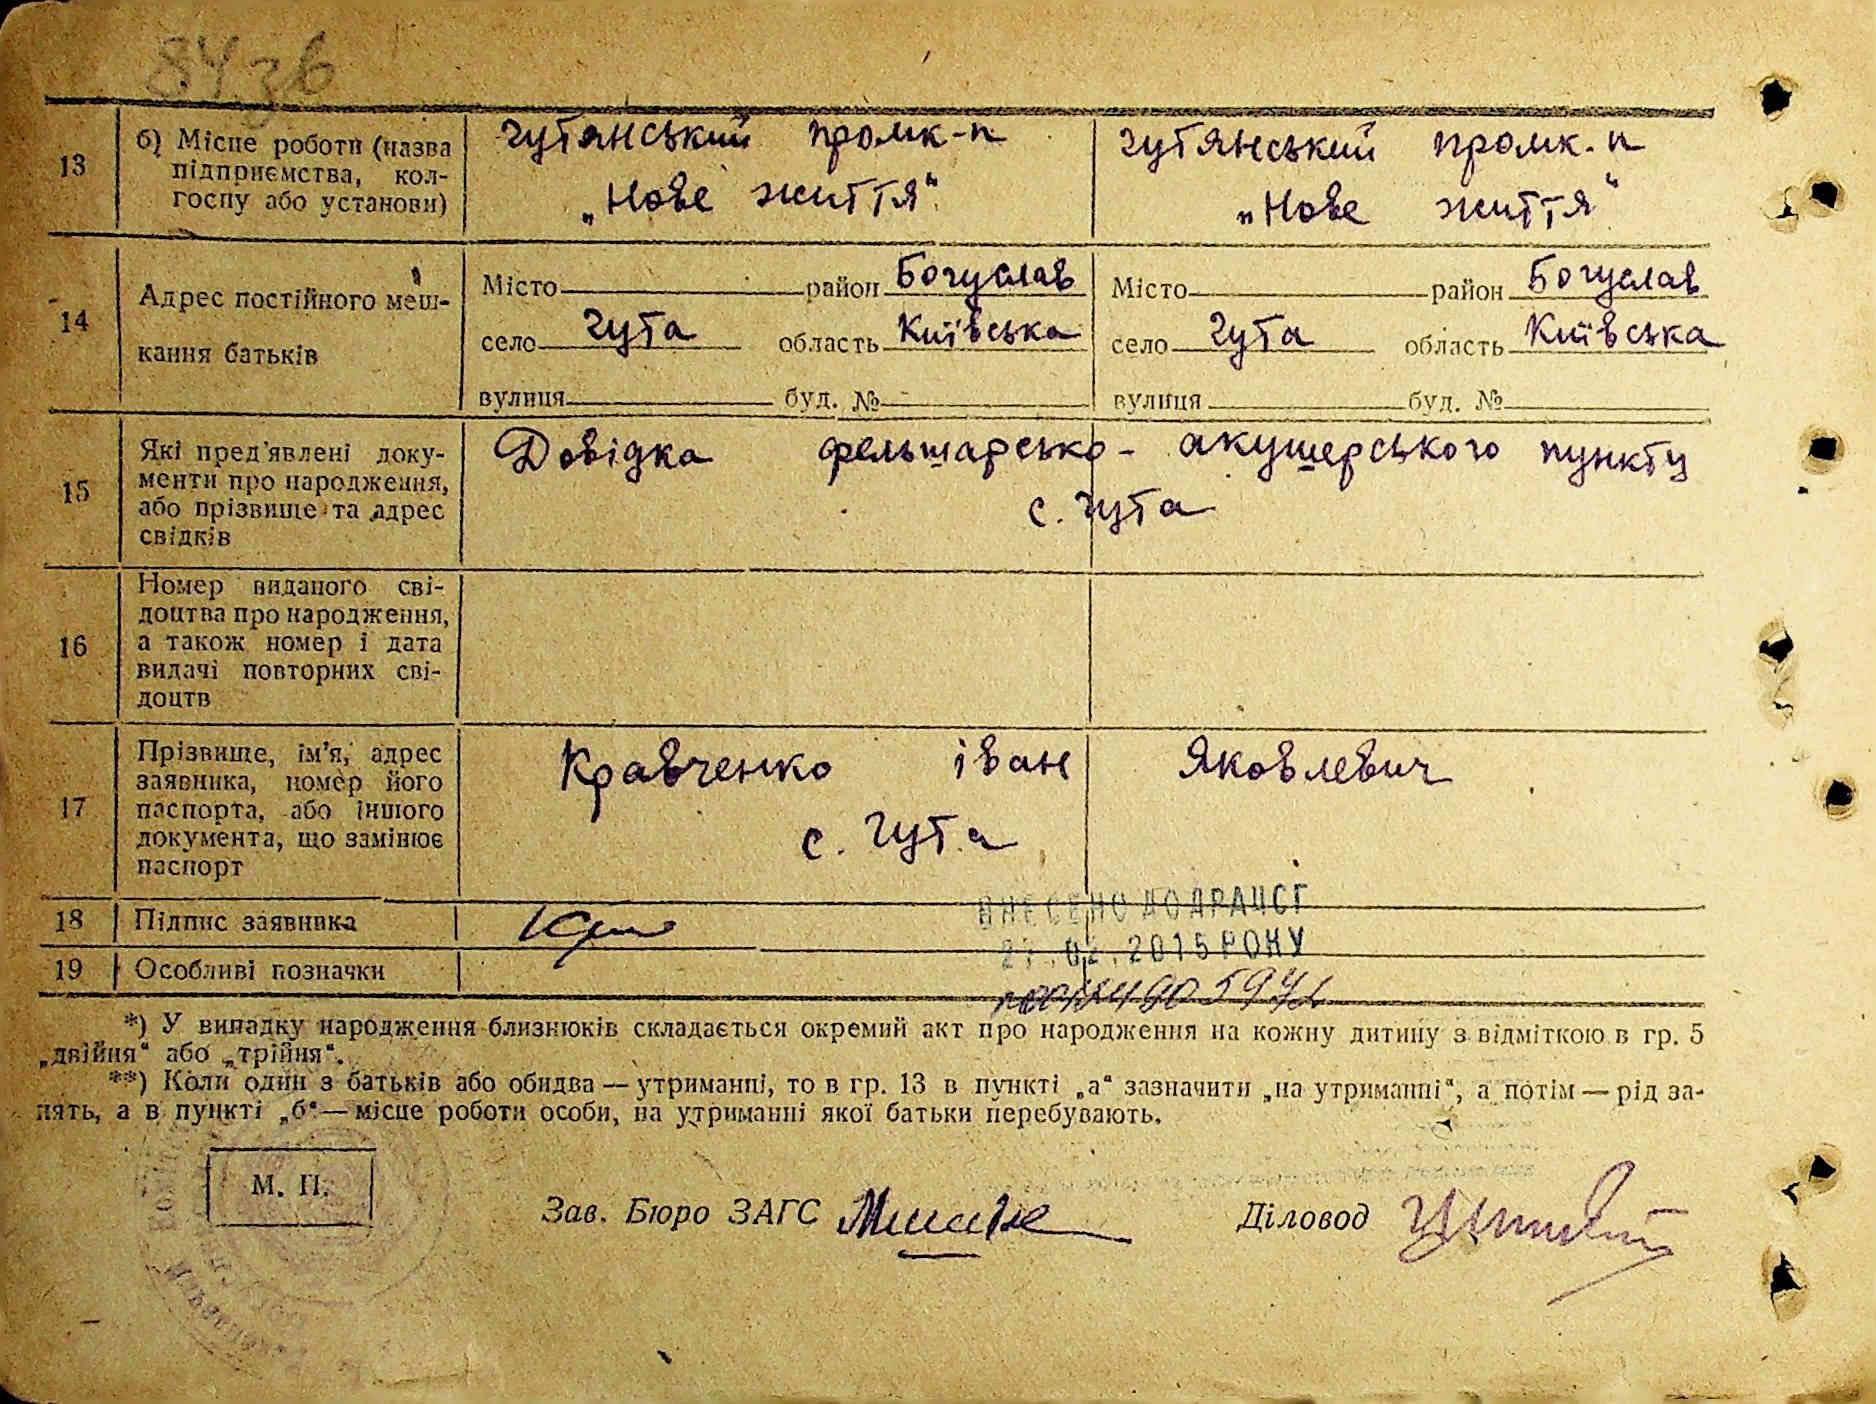 8436
13
б) Місце роботи (назва
підприємства, кол-
госпу або установи)
Гутянський промк-п
„Нове життя“
Гутянський промк-п
„Нове життя“
14
Адрес постійного меш-
кання батьків
Місто район Богуслав
село Гута область Київська
вулиця буд. №
Місто район Богуслав
село Гута область Київська
вулиця буд. №
15
Які пред'явлені доку-
менти про народження,
або прізвище та адрес
свідків
Довідка фельшарсько-акушерського пункту
с. Гута
16
Номер виданого сві-
доцтва про народження,
а також номер і дата
видачі повторних сві-
доцтв
17
Прізвище, ім'я, адрес
заявника, номер його
паспорта, або іншого
документа, що замінює
паспорт
Кравченко Іван Яковлевич
с. Гута
18 Підпис заявника
ВНЕСЕНО ДО ДРАЦСГ
02.2015 РОКУ
19 Особливі позначки
*) У випадку народження близнюків складається окремий акт про народження на кожну дитину з відміткою в гр. 5
„двійня“ або „трійня“.
**) Коли один з батьків або обидва — утриманці, то в гр. 13 в пункті „а“ зазначити „на утриманні“, а потім — рід за-
нять, а в пункті „б“ — місце роботи особи, на утриманні якої батьки перебувають.
М. П.
Зав. Бюро ЗАГС
Діловод